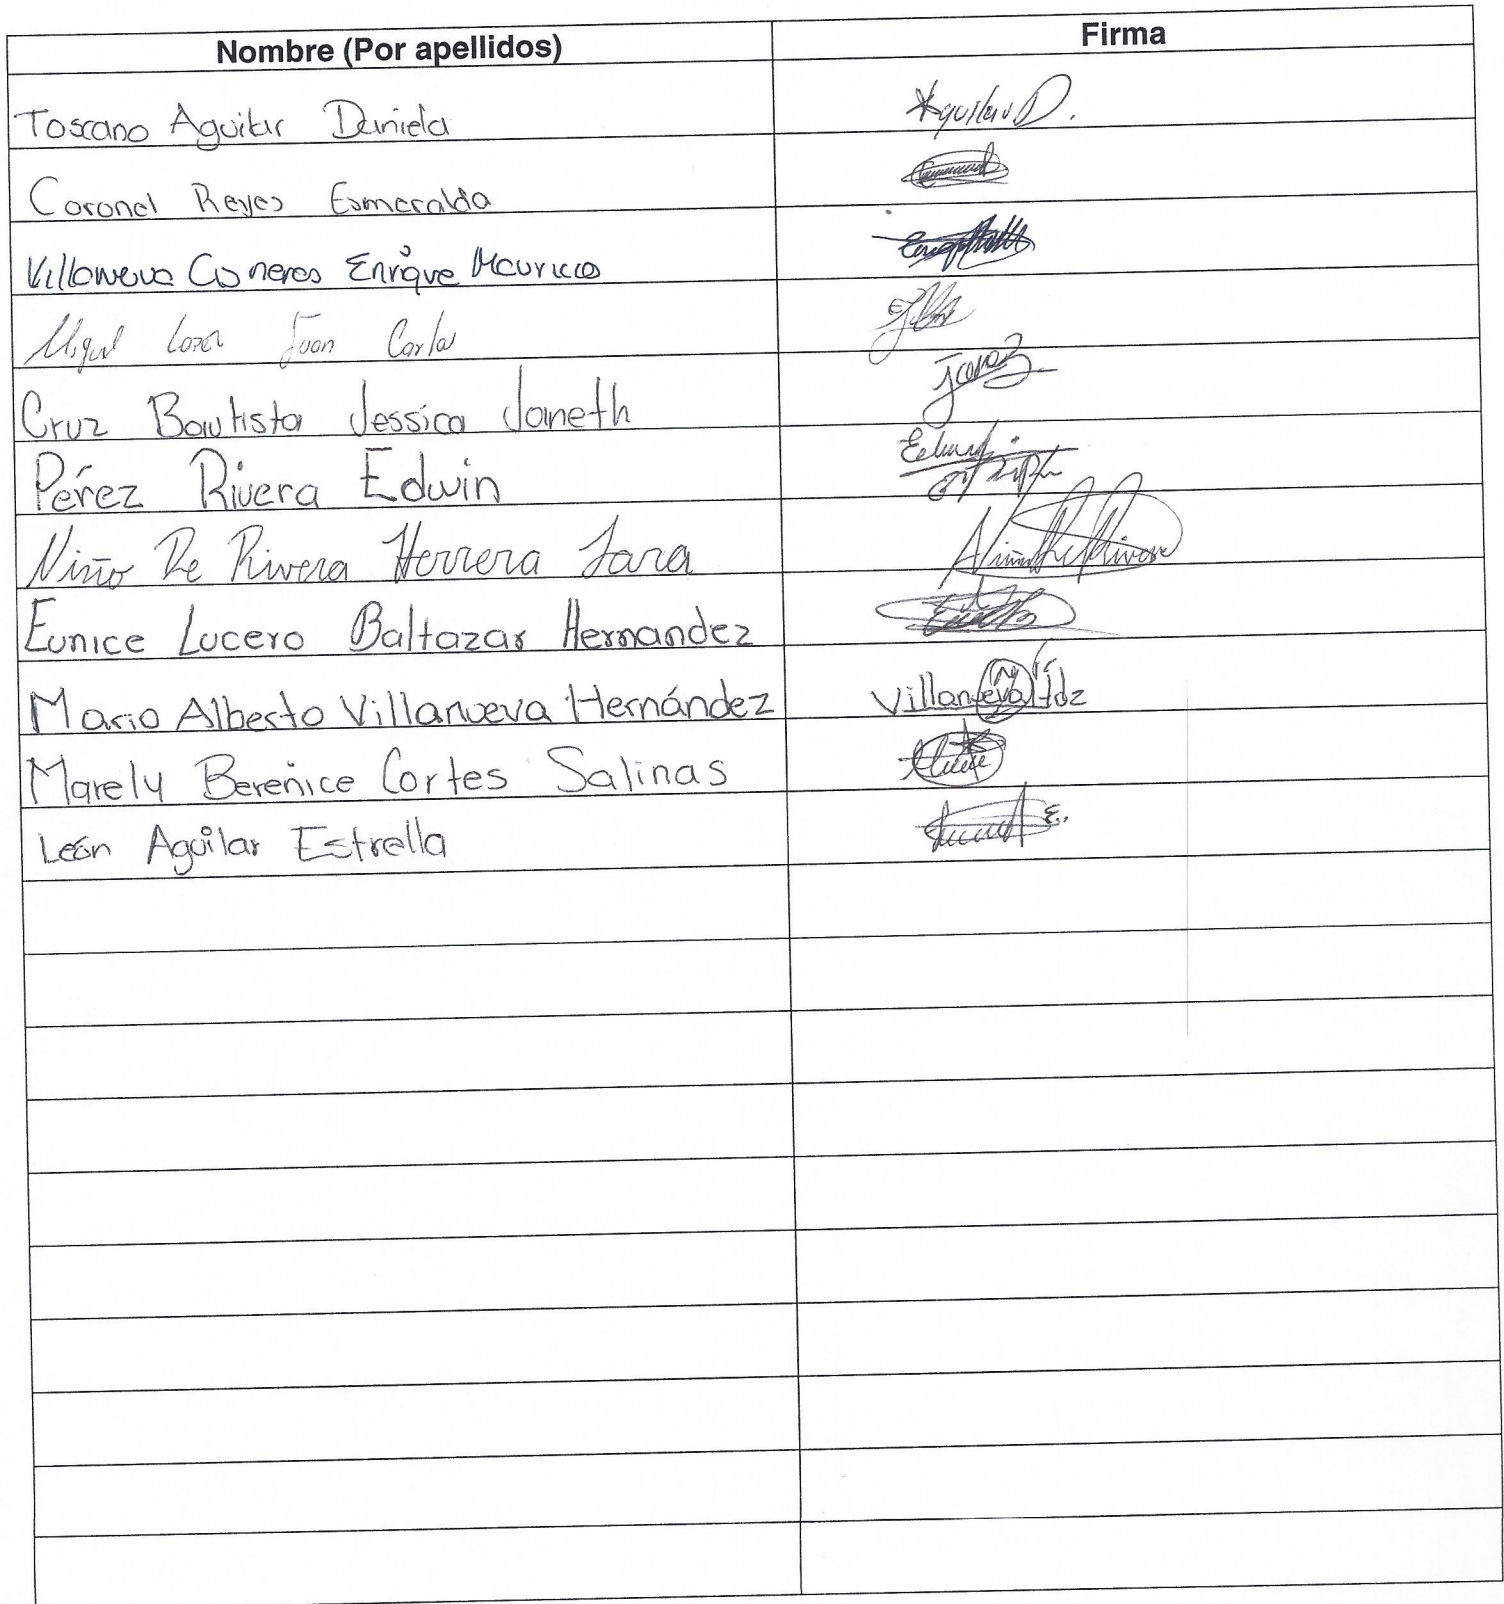 Nombre (Por apellidos) Firma
Toscano Aguilar Daniela Aguilar D.
Coronel Reyes Esmeralda
Villanueva Cisneros Enrique Mauricio
Miguel Juan Carlos
Cruz Bautista Jessica Janeth
Pérez Rivera Edwin
Niño De Rivera Herrera Sara
Eunice Lucero Baltazar Hernandez
Mario Alberto Villanueva Hernández Villanueva Hdz
Marely Berenice Cortes Salinas
León Aguilar Estrella